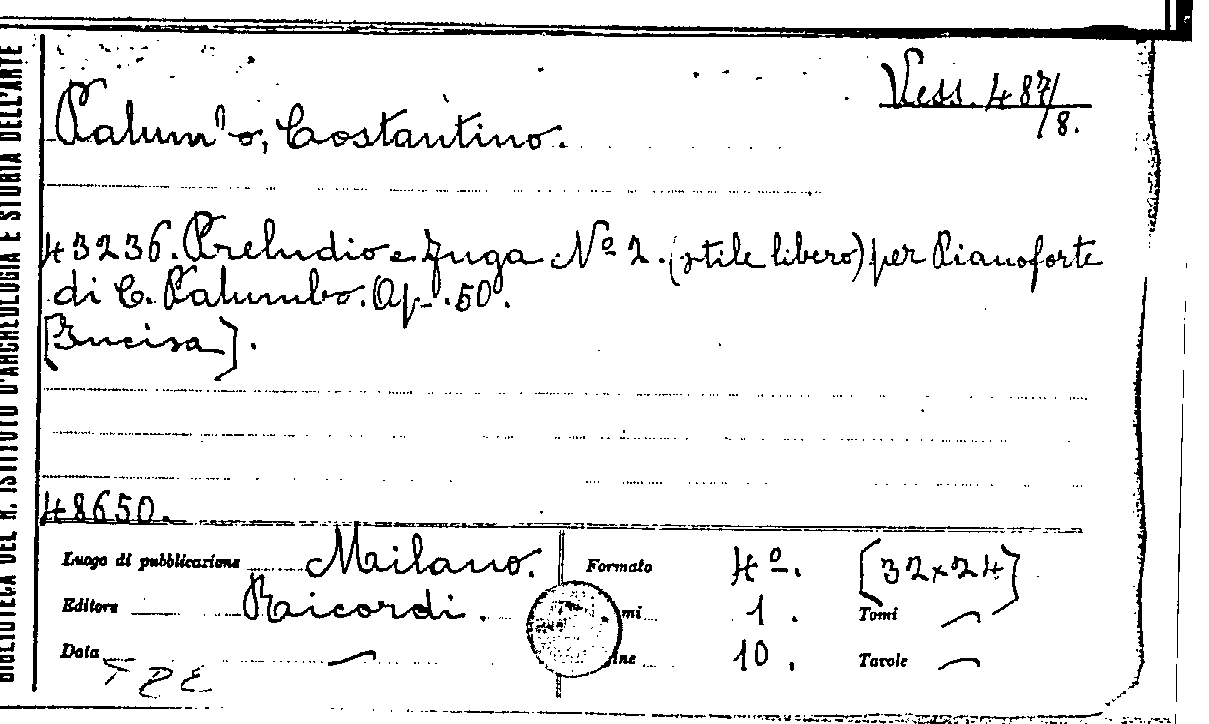 BIBLIOTECA DEL R. ISTITUTO D'ARCHEOLOGIA E STORIA DELL'ARTE
Vess. 487/
/8.
Palumbo, Costantino.
43236. Preludio e Fuga Nº 2. (stile libero) per Pianoforte
di C. Palumbo. Op. 50.
[Incisa].
48650.
Luogo di pubblicazione Milano. Formato 4º. [32x24]
Editore Ricordi. mi 1. Tomi —
Data — ine 10. Tavole —